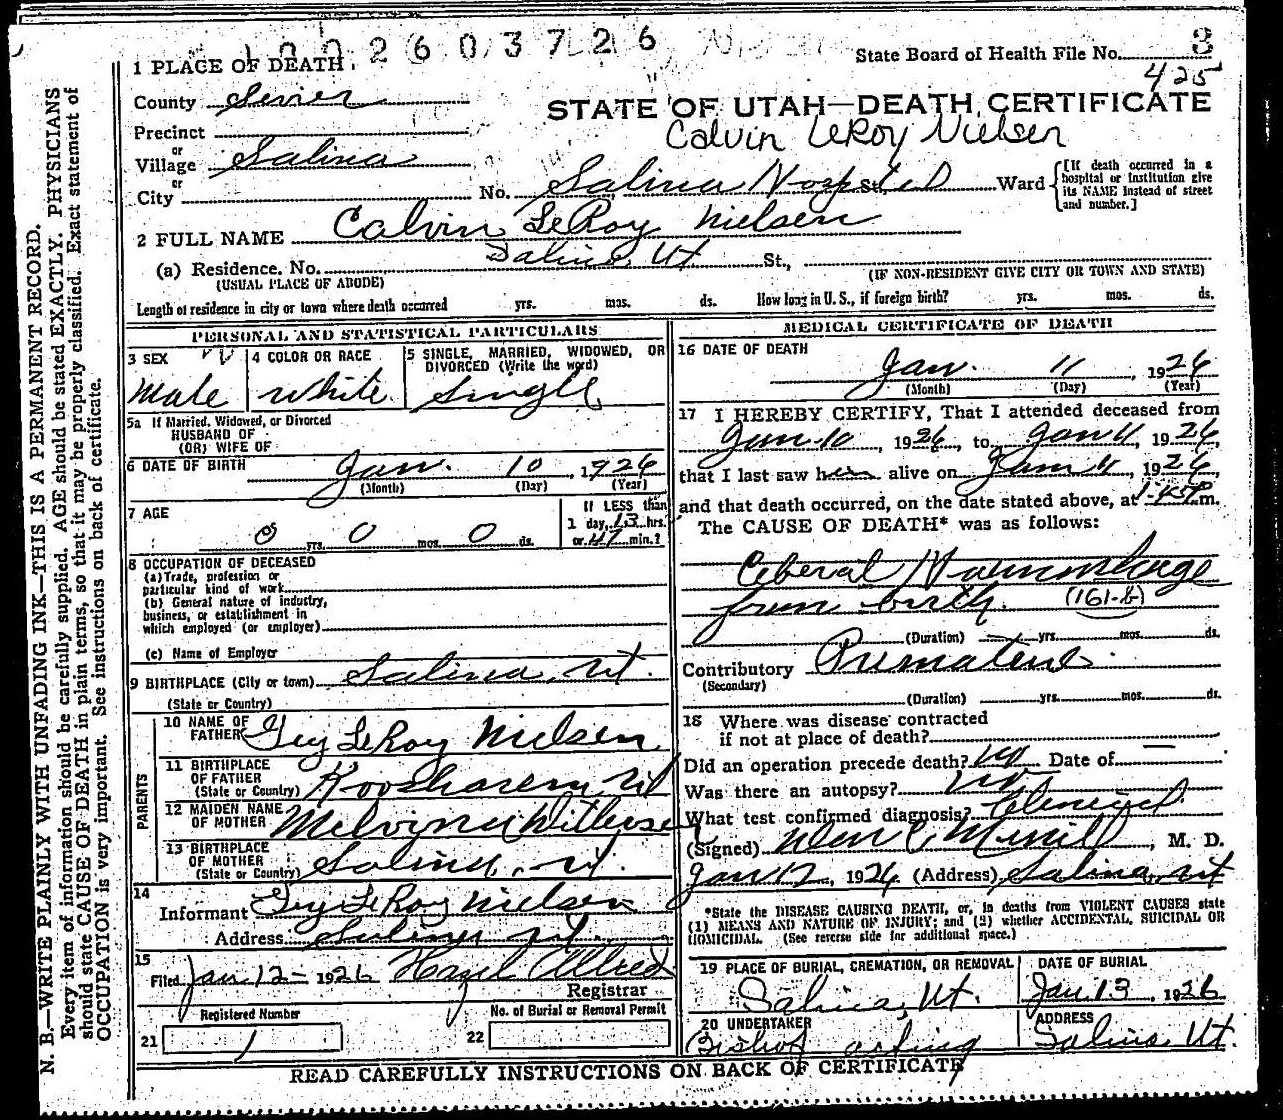 1 PLACE OF DEATH. 1 0 0 2 6 0 3 7 2 6
State Board of Health File No. 3
425
County Sevier
STATE OF UTAH—DEATH CERTIFICATE
Calvin LeRoy Nielsen
Precinct
or
Village Salina
or
City No. Salina Hospital St. Ward
[If death occurred in a hospital or institution give its NAME instead of street and number.]
2 FULL NAME Calvin LeRoy Nielsen
(a) Residence. No. Salina Ut St.,
(USUAL PLACE OF ABODE) (IF NON-RESIDENT GIVE CITY OR TOWN AND STATE)
Length of residence in city or town where death occurred yrs. mos. ds. How long in U. S., if foreign birth? yrs. mos. ds.
PERSONAL AND STATISTICAL PARTICULARS
3 SEX 4 COLOR OR RACE 5 SINGLE, MARRIED, WIDOWED, OR DIVORCED (Write the word)
Male White Single
5a If Married, Widowed, or Divorced
HUSBAND OF
(OR) WIFE OF
6 DATE OF BIRTH Jan. 10, 1926
(Month) (Day) (Year)
7 AGE If LESS than
1 day, 13 hrs.
0 yrs. 0 mos. 0 ds. or 47 min.?
8 OCCUPATION OF DECEASED
(a) Trade, profession or
particular kind of work
(b) General nature of industry,
business, or establishment in
which employed (or employer)
(c) Name of Employer
9 BIRTHPLACE (City or town) Salina, Ut.
(State or Country)
PARENTS
10 NAME OF
FATHER Guy LeRoy Nielsen
11 BIRTHPLACE
OF FATHER
(State or Country) Koosharem Ut
12 MAIDEN NAME
OF MOTHER Melvina
13 BIRTHPLACE
OF MOTHER
(State or Country) Salina, Ut.
14
Informant Guy LeRoy Nielsen
Address Salina Ut.
15
Filed Jan 12 1926 Hazel Allred
Registrar
Registered Number No. of Burial or Removal Permit
21 1 22
MEDICAL CERTIFICATE OF DEATH
16 DATE OF DEATH
Jan. 11, 1926
(Month) (Day) (Year)
17 I HEREBY CERTIFY, That I attended deceased from
Jan 10, 1926, to Jan 11, 1926,
that I last saw him alive on Jan 11, 1926,
and that death occurred, on the date stated above, at m.
The CAUSE OF DEATH* was as follows:
Ceberal Haemmorhage
from birth. (161-b)
(Duration) yrs. mos. ds.
Contributory Premature.
(Secondary)
(Duration) yrs. mos. ds.
18 Where was disease contracted
if not at place of death?
Did an operation precede death? no Date of —
Was there an autopsy? no
What test confirmed diagnosis? Clinical
(Signed) Merrill, M. D.
Jan 12, 1926 (Address) Salina, Ut
*State the DISEASE CAUSING DEATH, or, in deaths from VIOLENT CAUSES state
(1) MEANS AND NATURE OF INJURY; and (2) whether ACCIDENTAL, SUICIDAL OR
HOMICIDAL. (See reverse side for additional space.)
19 PLACE OF BURIAL, CREMATION, OR REMOVAL DATE OF BURIAL
Salina, Ut. Jan. 13, 1926
20 UNDERTAKER ADDRESS
Bishop acting Salina Ut.
READ CAREFULLY INSTRUCTIONS ON BACK OF CERTIFICATE
N. B.—WRITE PLAINLY WITH UNFADING INK—THIS IS A PERMANENT RECORD.
Every item of information should be carefully supplied. AGE should be stated EXACTLY. PHYSICIANS
should state CAUSE OF DEATH in plain terms, so that it may be properly classified. Exact statement of
OCCUPATION is very important. See instructions on back of certificate.